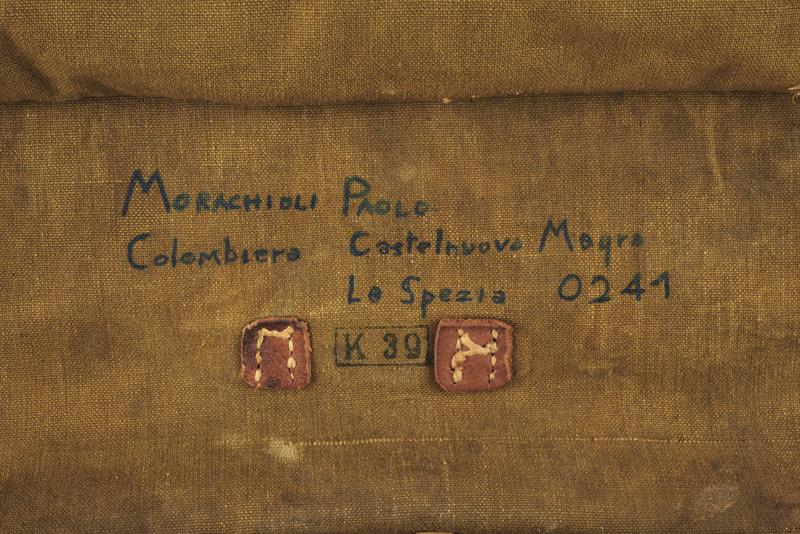 MORACHIOLI PAOLO
Colombiera Castelnuovo Magra
La Spezia 0241
K 39